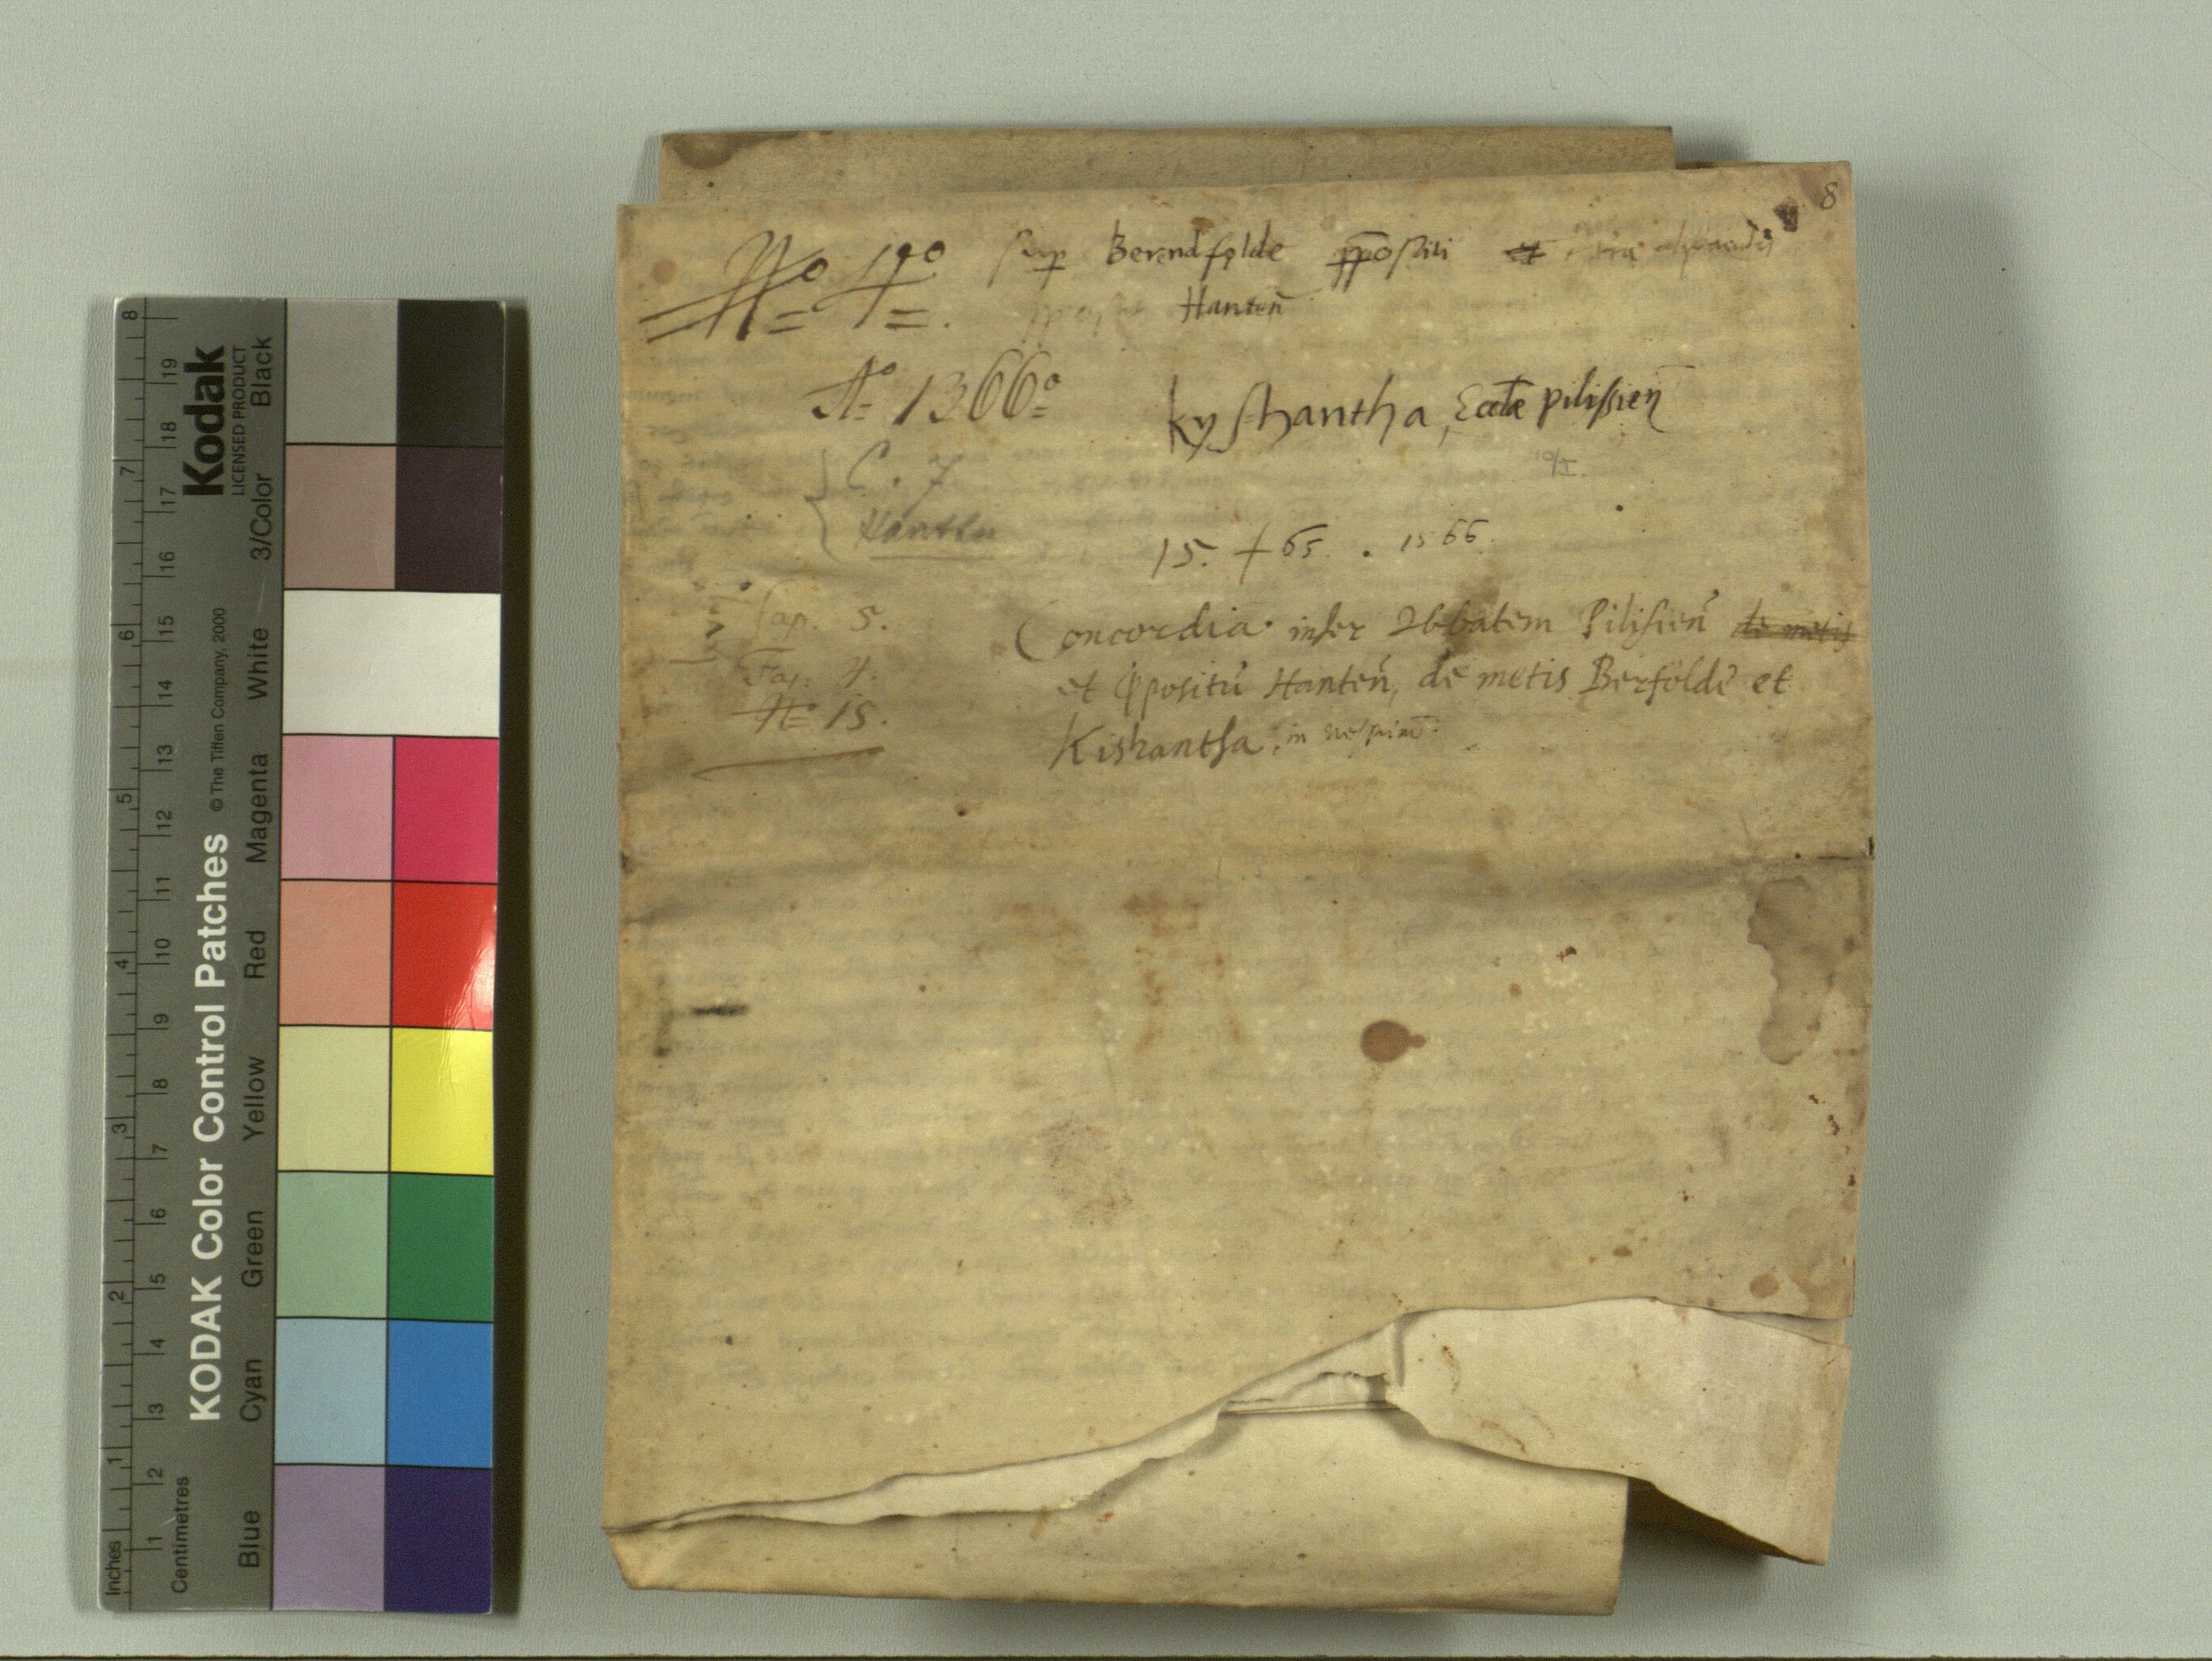 8
Nº 19º
sup Berendfolde ppositi
Hanteñ
Aº 1366º
kyshantha, Eccłæ pilissieñ
C. 7
Hantha
15. + 65. . 1566.
Cap. 5.
Fas. 4.
Nº 15.
Concordia inter Abbatem Pilisieñ de metis
et ppositũ Hanteñ, de metis Berfölde et
Kishantha, in
Kodak
LICENSED PRODUCT
KODAK Color Control Patches © The Tiffen Company, 2000
Blue Cyan Green Yellow Red Magenta White 3/Color Black
Inches 1 2 3 4 5 6 7 8
Centimetres 1 2 3 4 5 6 7 8 9 10 11 12 13 14 15 16 17 18 19